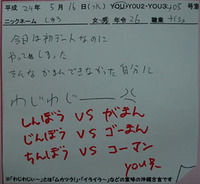 平成 24年 5月 16日(水) YOU・YOU2・YOU3 405 号室
ニックネーム しゅう 女・男 年令 26 職業
今日は初デートなのに
やってしまった
そんながまんできなかった自分に
わじわじー
しんぼう VS がまん
じんぼう VS ゴーまん
ちんぼう VS コーマン
YOU系
※「わじわじぃ~」とは「ムカツク!」「イライラ~」などの意味の沖縄方言です